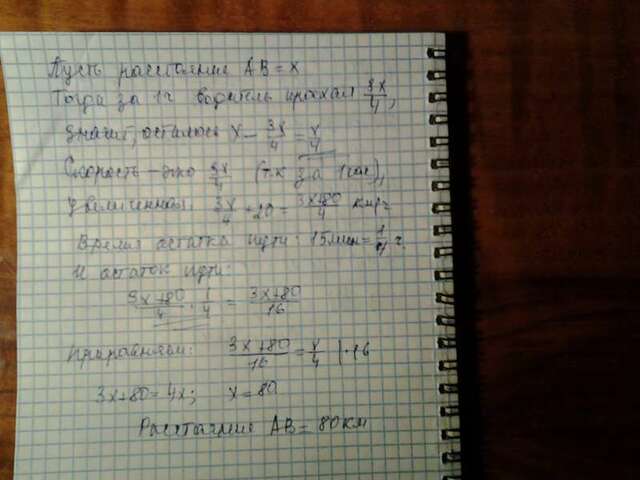 Пусть расстояние AB = x
Тогда за 1ч водитель проехал 3x/4,
значит, осталось x - 3x/4 = x/4
Скорость - это 3x/4 (т.к за 1 час),
увеличенная 3x/4 + 20 = 3x+80/4 км/ч
Время остатка пути: 15мин = 1/4 ч.
И остаток пути:
3x+80/4 · 1/4 = 3x+80/16
Приравняем: 3x+80/16 = x/4 | · 16
3x+80 = 4x; x = 80
Расстояние AB = 80км